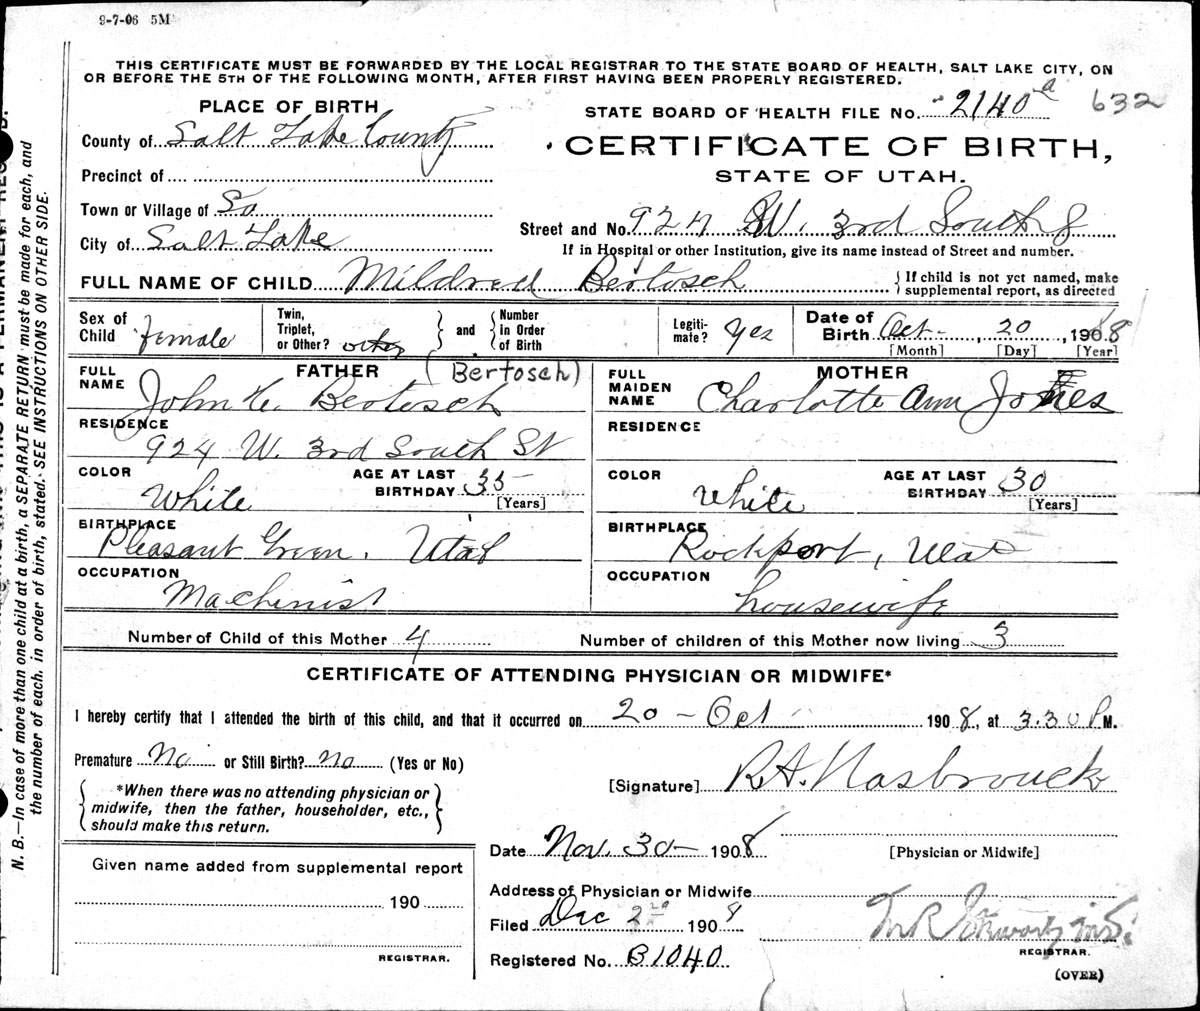 9-7-06 5M
THIS CERTIFICATE MUST BE FORWARDED BY THE LOCAL REGISTRAR TO THE STATE BOARD OF HEALTH, SALT LAKE CITY, ON
OR BEFORE THE 5TH OF THE FOLLOWING MONTH, AFTER FIRST HAVING BEEN PROPERLY REGISTERED.
PLACE OF BIRTH
STATE BOARD OF HEALTH FILE No. 2140 a 632
County of Salt Lake County
CERTIFICATE OF BIRTH,
STATE OF UTAH.
Precinct of
Town or Village of So
Street and No. 924 W. 3rd South
City of Salt Lake
If in Hospital or other Institution, give its name instead of Street and number.
FULL NAME OF CHILD Mildred Bertosch
{If child is not yet named, make
supplemental report, as directed
Sex of Child female
Twin, Triplet, or Other? other } and { Number in Order of Birth
Legiti-mate? Yes
Date of Birth Oct- 20, 1908
[Month] [Day] [Year]
FATHER (Bertosch)
FULL NAME John H. Bertosch
RESIDENCE
924 W. 3rd South St
COLOR White
AGE AT LAST BIRTHDAY 35 [Years]
BIRTHPLACE
Pleasant Green, Utah
OCCUPATION
Machinist
MOTHER
FULL MAIDEN NAME Charlotte Ann Jones
RESIDENCE
COLOR White
AGE AT LAST BIRTHDAY 30 [Years]
BIRTHPLACE
Rockport, Utah
OCCUPATION
housewife
Number of Child of this Mother 4
Number of children of this Mother now living 3
CERTIFICATE OF ATTENDING PHYSICIAN OR MIDWIFE*
I hereby certify that I attended the birth of this child, and that it occurred on 20 - Oct 1908, at 3.30 P M.
Premature No or Still Birth? no (Yes or No)
[Signature] R.A. Hasbrouck
{*When there was no attending physician or
midwife, then the father, householder, etc.,
should make this return.}
Date Nov. 30- 1908
[Physician or Midwife]
Given name added from supplemental report
190
REGISTRAR.
Address of Physician or Midwife
Filed Dec 2nd 1908
REGISTRAR.
Registered No. B1040
(OVER)
N. B.—In case of more than one child at a birth, a SEPARATE RETURN must be made for each, and
the number of each, in order of birth, stated. SEE INSTRUCTIONS ON OTHER SIDE.